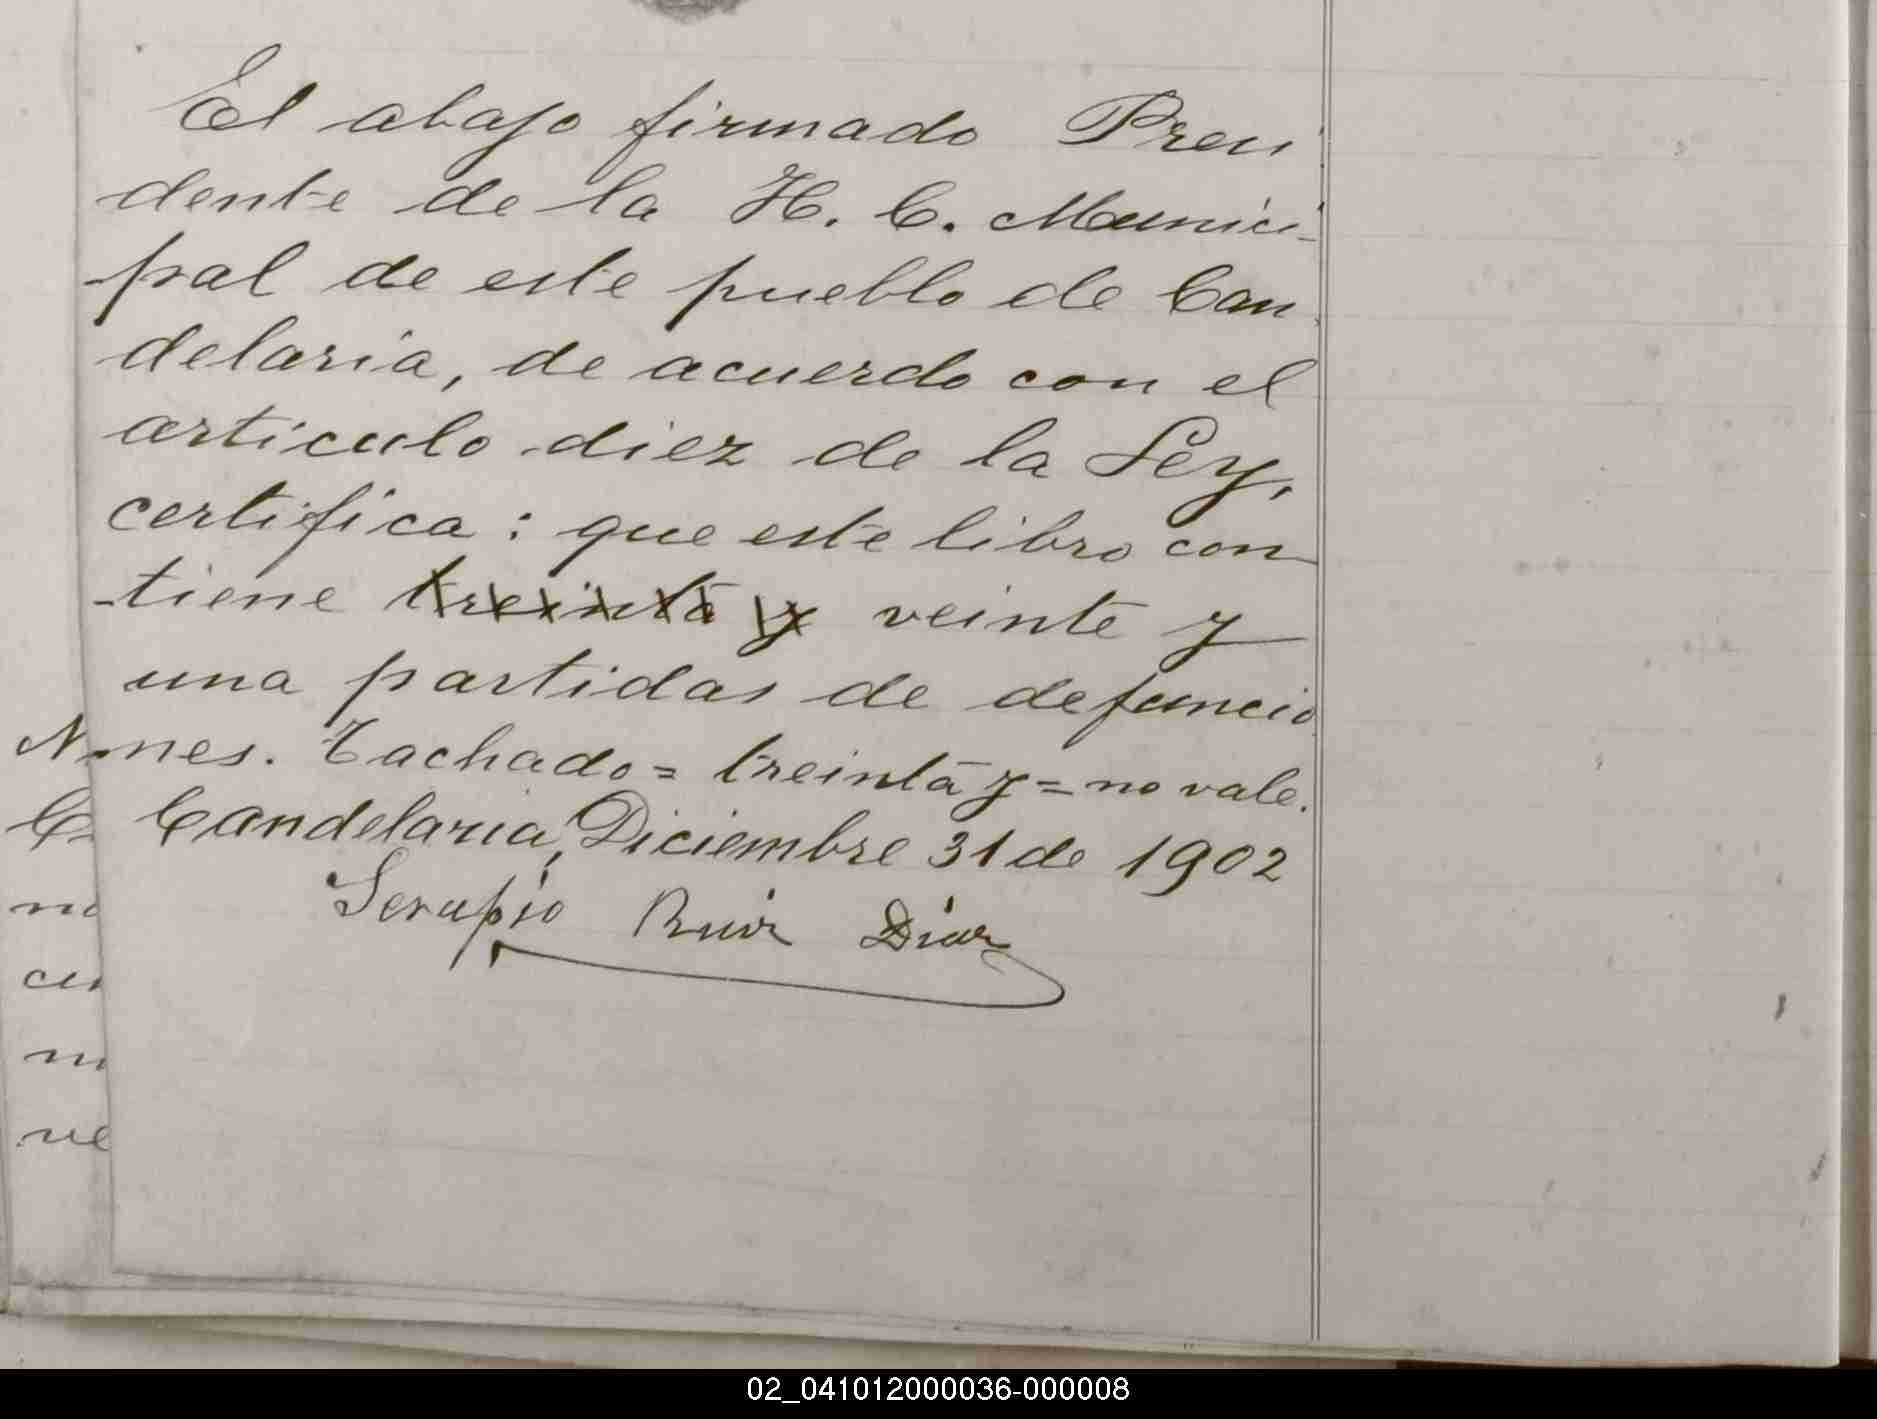 El abajo firmado Presi
dente de la H. C. Munici-
-pal de este pueblo de Can
delaria, de acuerdo con el
artículo diez de la Ley,
certifica: que este libro con
-tiene treinta y veinte y
una partidas de defuncio
nes. Tachado= treinta y = no vale.
Candelaria, Diciembre 31 de 1902
Serapio Ruiz Diaz
N
C
no
cu
m
ve
02_041012000036-000008